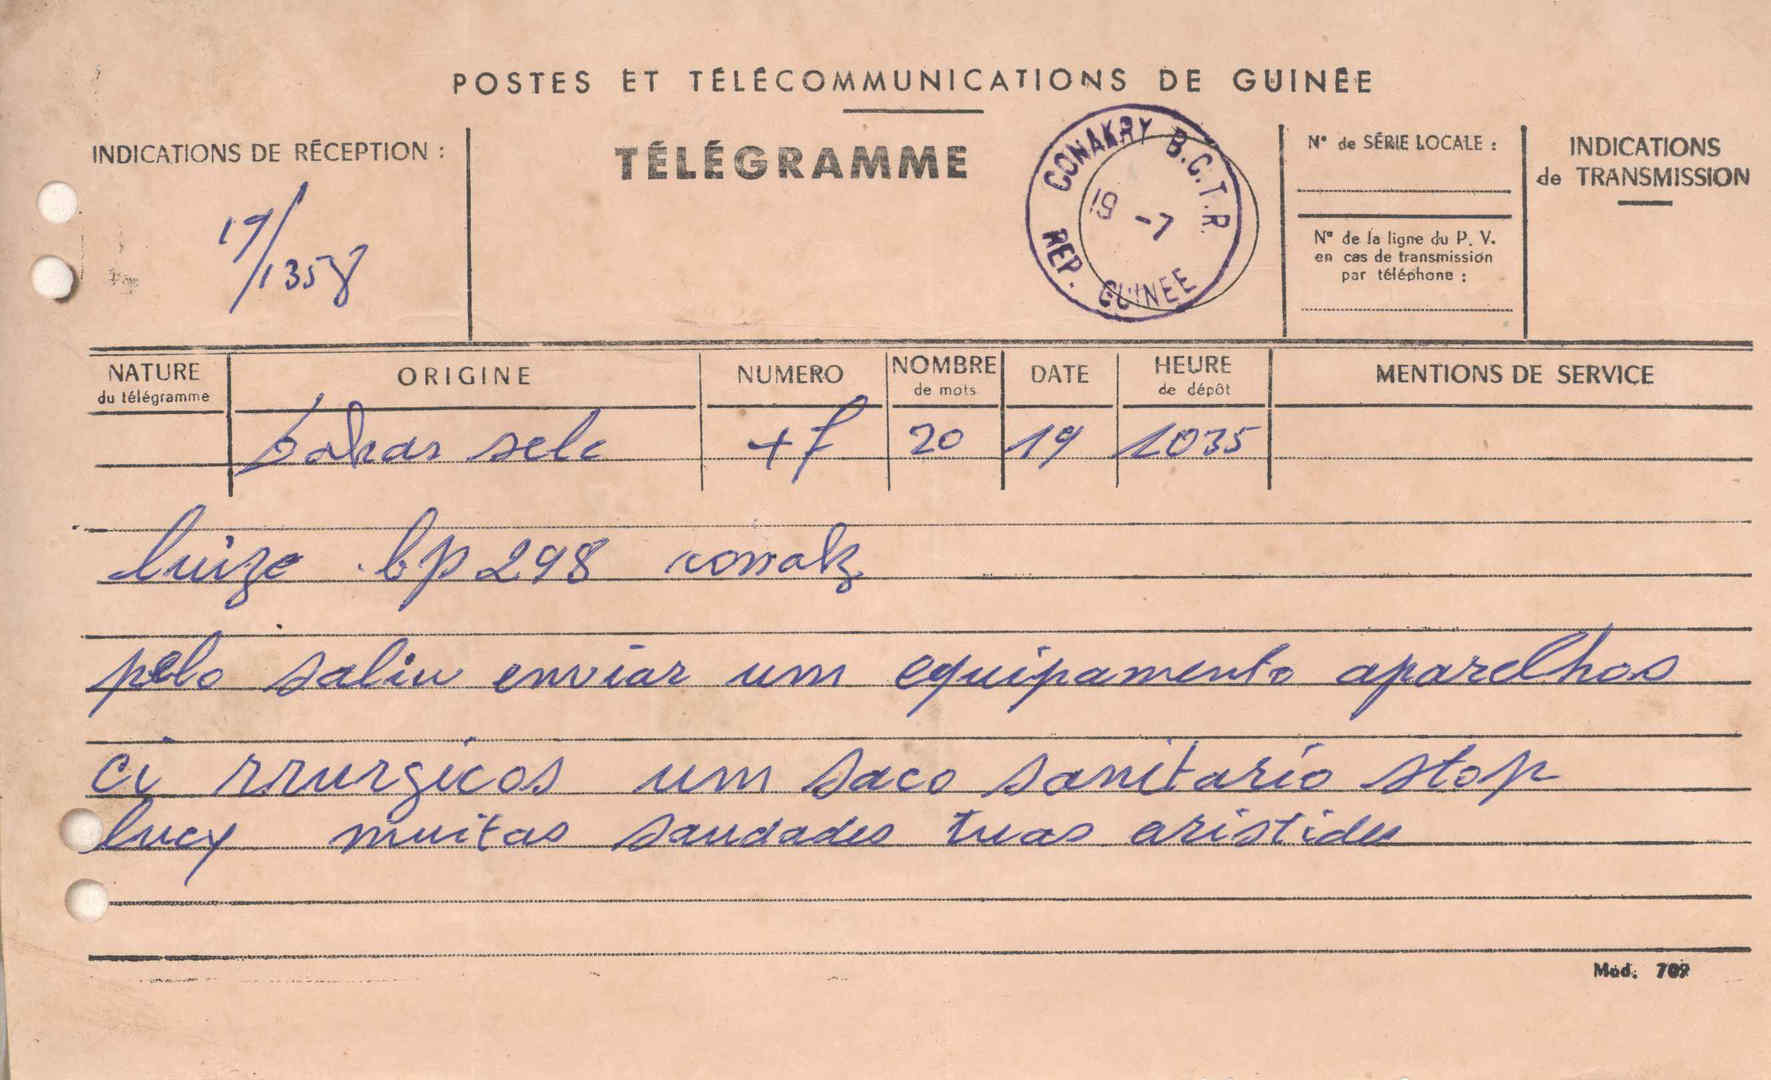 POSTES ET TÉLÉCOMMUNICATIONS DE GUINÉE
INDICATIONS DE RÉCEPTION :
19/1358
TÉLÉGRAMME
CONAKRY B.C.T.R.
19 -7
REP. GUINÉE
N° de SÉRIE LOCALE :
N° de la ligne du P. V.
en cas de transmission
par téléphone :
INDICATIONS
de TRANSMISSION
NATURE
du télégramme
ORIGINE
NUMERO
NOMBRE
de mots
DATE
HEURE
de dépôt
MENTIONS DE SERVICE
20 19 1035
luize bp 298
pelo saliu enviar um equipamento aparelhos
ci rrurgicos um saco sanitario stop
lucy muitas saudades tuas aristides
Mod. 709